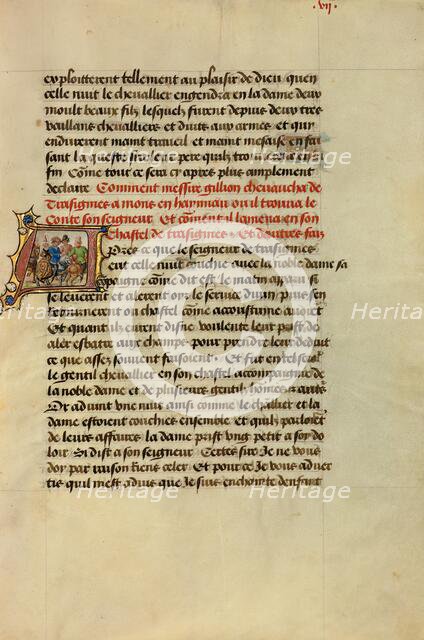 .vij.
exploitterent tellement au plaisir de dieu quen
celle nuit le chevallier engendra en la dame deux
moult beaux filz lesquelz furent depuis deux tres
vaillans chevalliers et duitz aux armes et qui
endurerent maint traveil et maint mesaise en fai
sant la queste sire leur pere quilz trouverent en
fin Come tout ce sera cy apres plus amplement
declaire Comment messire gillion chevaucha de
Trasignies a mons en haynnau ou il trouva le
Conte son seigneur Et coment il lamena en son
Chastel de trasignies Et dautres faiz
Apres ce que le seigneur de trasignies
eut celle nuit couchie avec la noble dame sa
compaigne come dit est le matin
se leverent et alerent oyr le service divin puis sen
retournerent ou chastel come acoustume avoient
Et quant ilz eurent disne voulente leur prist de
aler esbatre aux champs pour prendre leur deduit
ce que assez souvent faisoient Et fut en
le gentil chevallier en son chastel accompaignie de
la noble dame et de plusieurs gentilz homes et autres
Or advint une nuit ainsi comme le chevallier et la
dame estoient couchies ensemble et quilz parloient
de leurs affaires la dame prist ung petit a soy do
loir Si dist a son seigneur Certes sire Je ne vous
doy par raison riens celer Et pour ce Je vous adver
tis quil mest advis que Je suis enchainte denfant
Heritage
Heritage
Heritage
Heritage
Heritage
Heritage